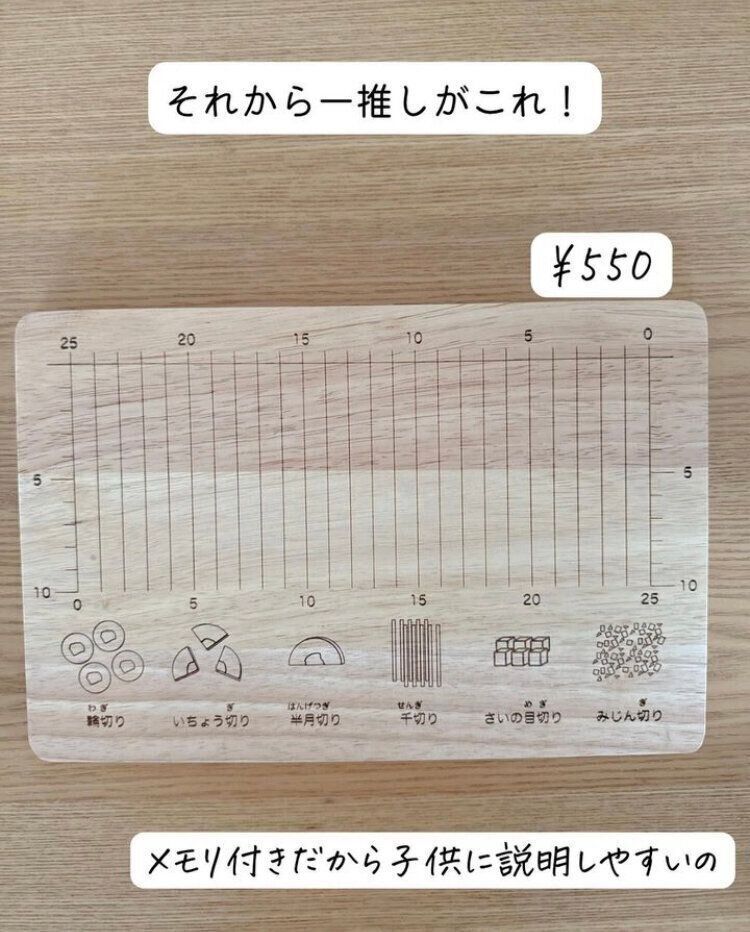 それから一推しがこれ！
¥550
25 20 15 10 5 0
5 5
10 10
0 5 10 15 20 25
わぎ ぎ はんげつぎ せんぎ めぎ ぎ
輪切り いちょう切り 半月切り 千切り さいの目切り みじん切り
メモリ付きだから子供に説明しやすいの